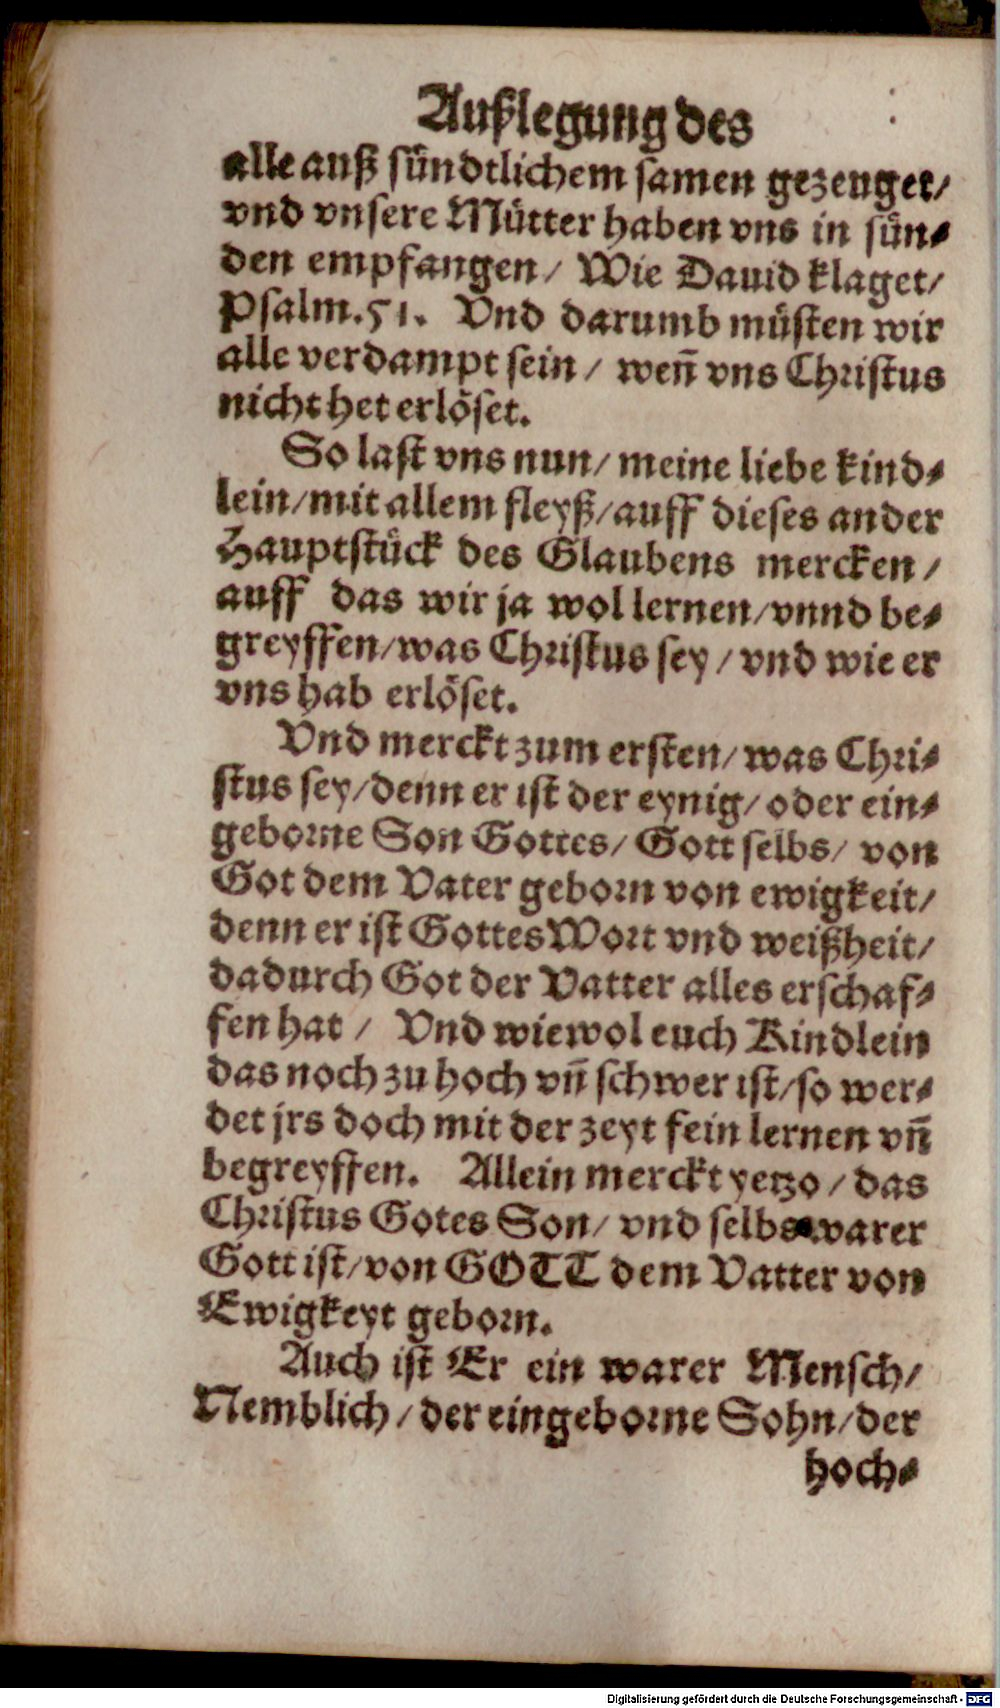 Außlegung des
alle auß sündtlichem samen gezenget/
vnd vnsere Mütter haben vns in sün⸗
den empfangen/ Wie Dauid klaget/
Psalm.51. Vnd darumb müsten wir
alle verdampt sein/ weñ vns Christus
nicht het erlöset.
So last vns nun/ meine liebe kind⸗
lein/mit allem fleyß/auff dieses ander
Hauptstück des Glaubens mercken/
auff das wir ja wol lernen/vnnd be⸗
greyffen/was Christus sey/vnd wie er
vns hab erlöset.
Vnd merckt zum ersten/was Chri⸗
stus sey/denn er ist der eynig/oder ein⸗
geborne Son Gottes/ Gott selbs/ von
Got dem Vater geborn von ewigkeit/
denn er ist Gottes Wort vnd weißheit/
dadurch Got der Vatter alles erschaf⸗
fen hat/ Vnd wiewol euch Kindlein
das noch zu hoch vñ schwer ist/so wer⸗
det jrs doch mit der zeyt fein lernen vñ
begreyffen. Allein merckt yetzo/das
Christus Gotes Son/ vnd selbs warer
Gott ist/von GOTT dem Vatter von
Ewigkeyt geborn.
Auch ist Er ein warer Mensch/
Nemblich/der eingeborne Sohn/der
hoch⸗
Digitalisierung gefördert durch die Deutsche Forschungsgemeinschaft - DFG